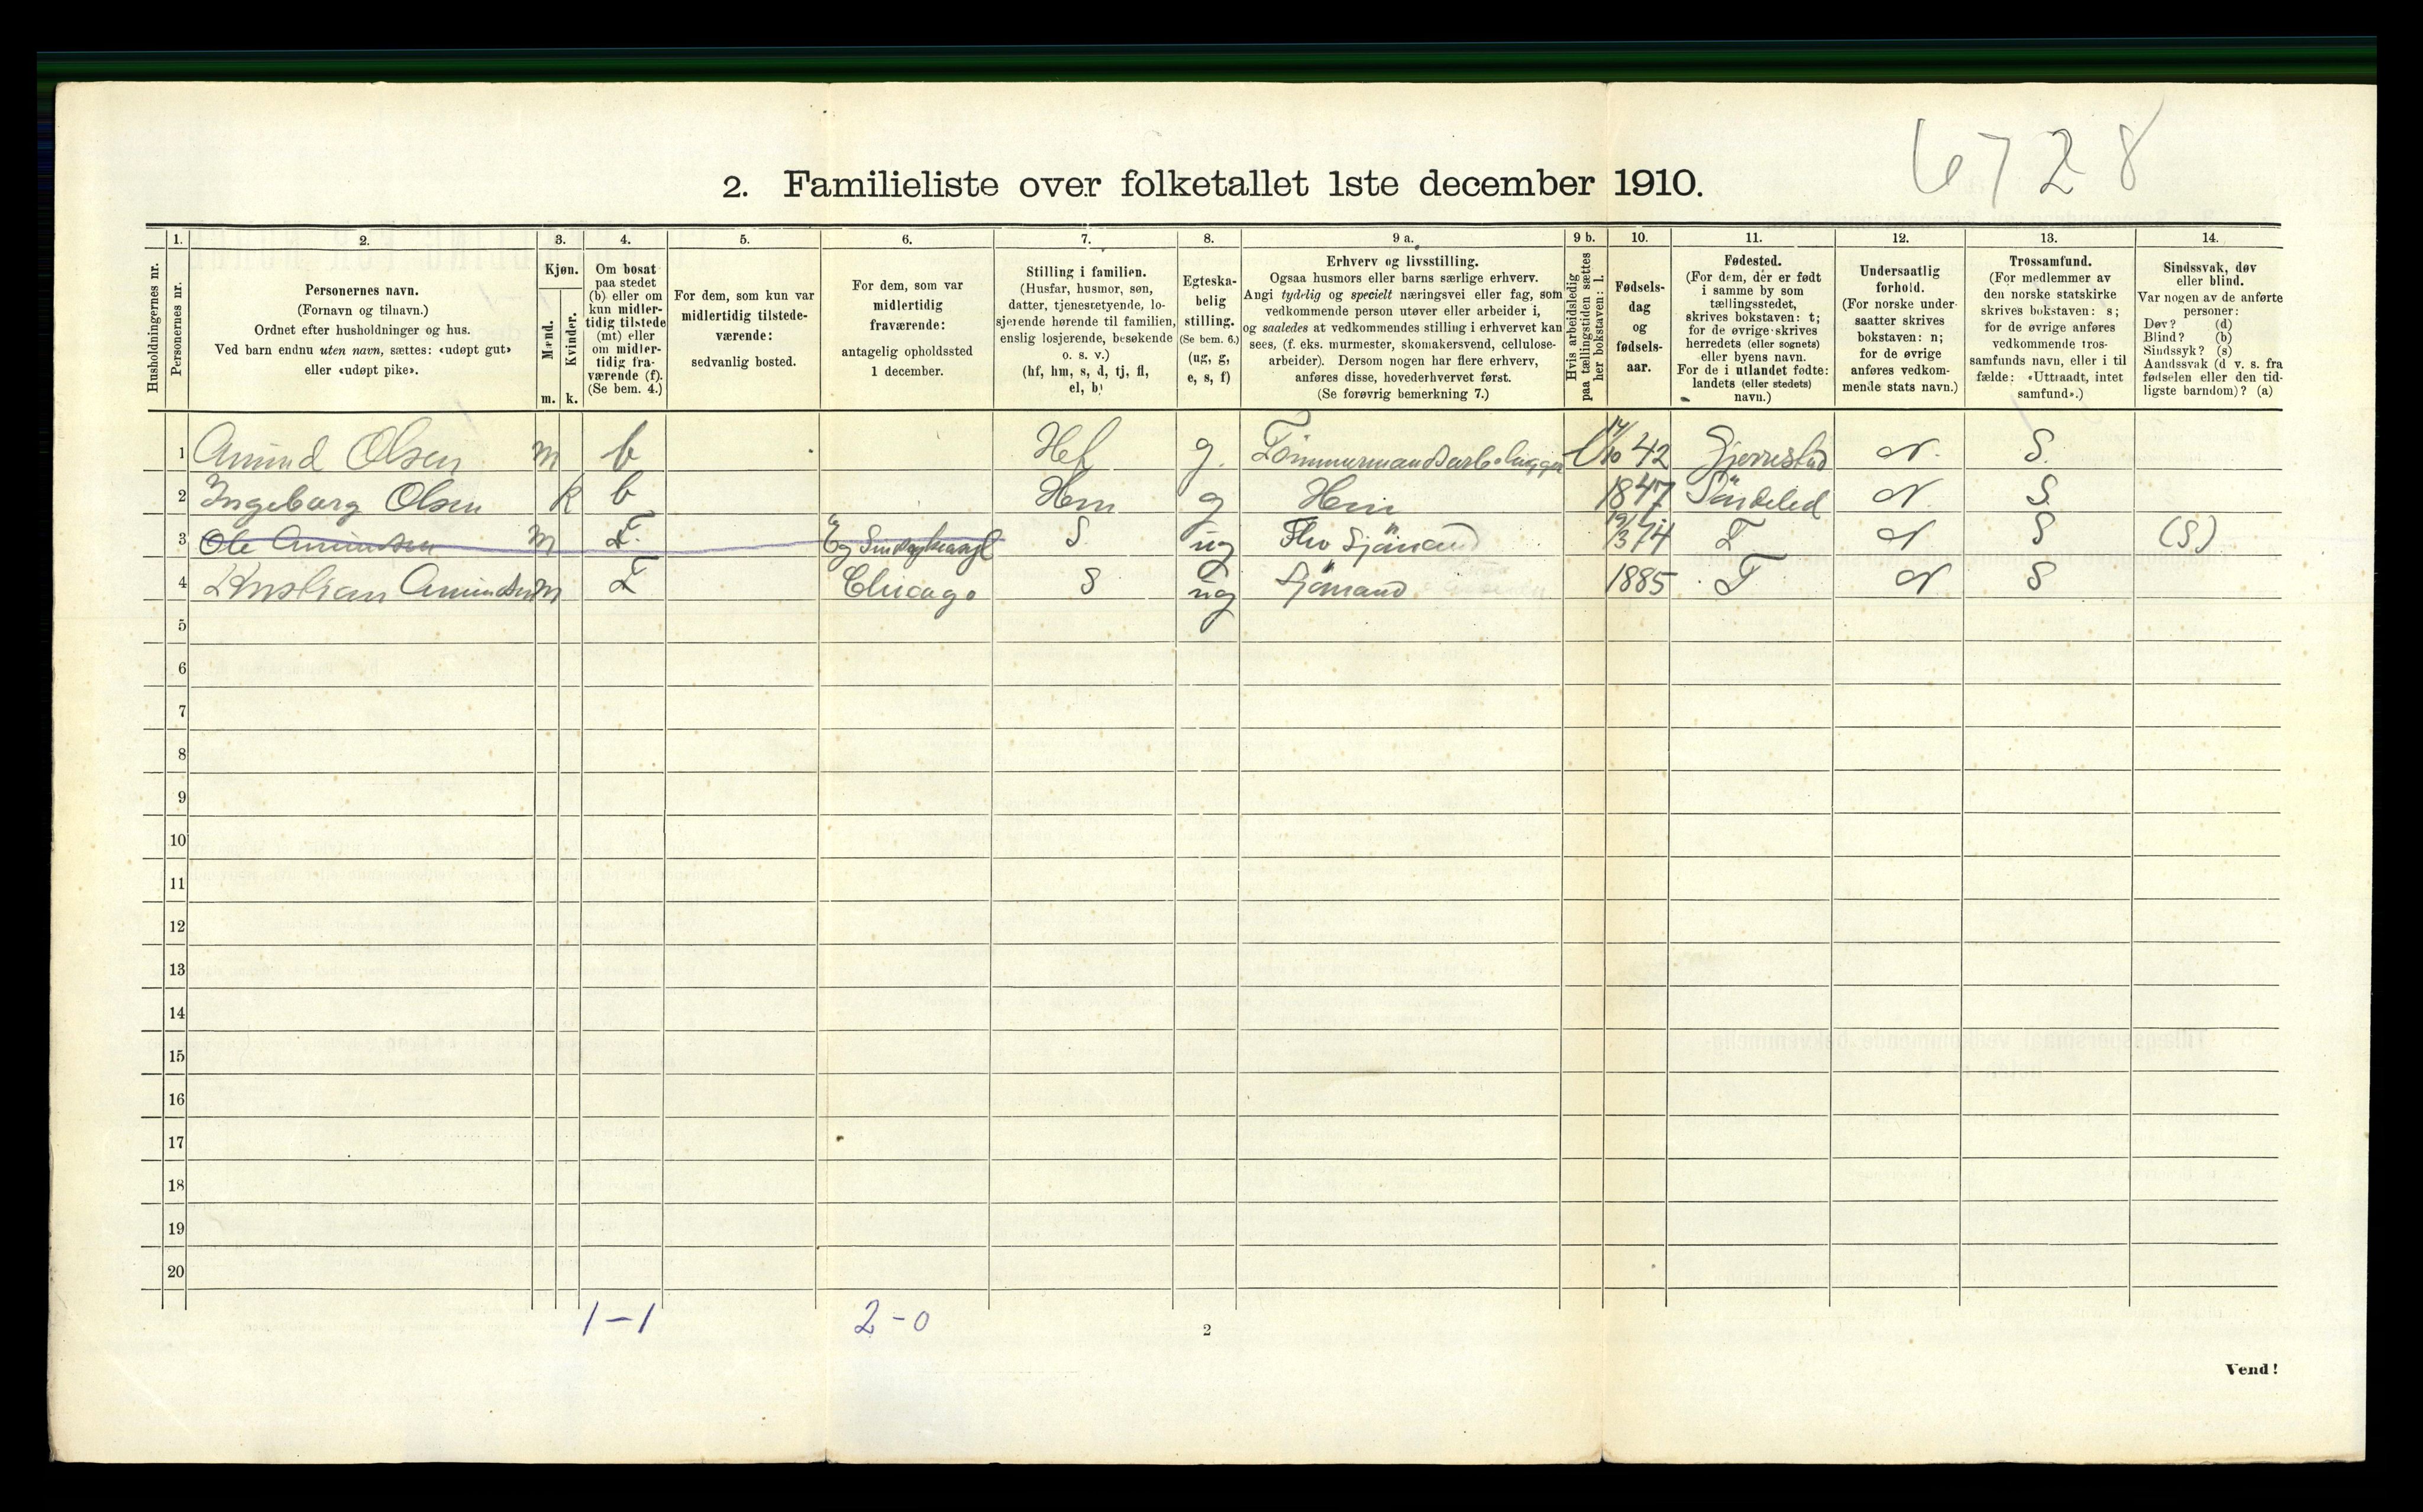 6728
2. Familieliste over folketallet 1ste december 1910.
Husholdningernes nr.
1.
Personernes nr.
2.
Personernes navn.
(Fornavn og tilnavn.)
Ordnet efter husholdninger og hus.
Ved barn endnu uten navn, sættes: «udøpt gut»
eller «udøpt pike».
3.
Kjøn.
Mænd.
Kvinder.
m. k.
4.
Om bosat
paa stedet
(b) eller om
kun midler-
tidig tilstede
(mt) eller
om midler-
tidig fra-
værende (f).
(Se bem. 4.)
5.
For dem, som kun var
midlertidig tilstede-
værende:
sedvanlig bosted.
6.
For dem, som var
midlertidig
fraværende:
antagelig opholdssted
1 december.
7.
Stilling i familien.
(Husfar, husmor, søn,
datter, tjenestetyende, lo-
sjerende hørende til familien,
enslig losjerende, besøkende
o. s. v.)
(hf, hm, s, d, tj, fl,
el, b)
8.
Egteska-
belig
stilling.
(Se bem. 6.)
(ug, g,
e, s, f)
9 a.
Erhverv og livsstilling.
Ogsaa husmors eller barns særlige erhverv.
Angi tydelig og specielt næringsvei eller fag, som
vedkommende person utøver eller arbeider i,
og saaledes at vedkommendes stilling i erhvervet kan
sees, (f. eks. murmester, skomakersvend, cellulose-
arbeider). Dersom nogen har flere erhverv,
anføres disse, hovederhvervet først.
(Se forøvrig bemerkning 7.)
9 b.
Hvis arbeidsledig
paa tællingstiden sættes
her bokstaven: l.
10.
Fødsels-
dag
og
fødsels-
aar.
11.
Fødested.
(For dem, der er født
i samme by som
tællingsstedet,
skrives bokstaven: t;
for de øvrige skrives
herredets (eller sognets)
eller byens navn.
For de i utlandet fødte:
landets (eller stedets)
navn.)
12.
Undersaatlig
forhold.
(For norske under-
saatter skrives
bokstaven: n;
for de øvrige
anføres vedkom-
mende stats navn.)
13.
Trossamfund.
(For medlemmer av
den norske statskirke
skrives bokstaven: s;
for de øvrige anføres
vedkommende tros-
samfunds navn, eller i til
fælde: «Uttraadt, intet
samfund».)
14.
Sindssvak, døv
eller blind.
Var nogen av de anførte
personer:
Døv? (d)
Blind? (b)
Sindssyk? (s)
Aandssvak (d v. s. fra
fødselen eller den tid-
ligste barndom)? (a)
1 Amund Olsen m b Hf g. l 42 Gjerrestad N. S.
2 Ingeborg Olsen k b Hm g Hm 1847 Söndeled N S.
3 Ole Amundsen m F. S ug Sjömand 74 T N S (S)
4 Kristian Amundsen m F Chicago S ug Sjömand 1885 T N S
5
6
7
8
9
10
11
12
13
14
15
16
17
18
19
20
1-1 2-0
2
Vend!